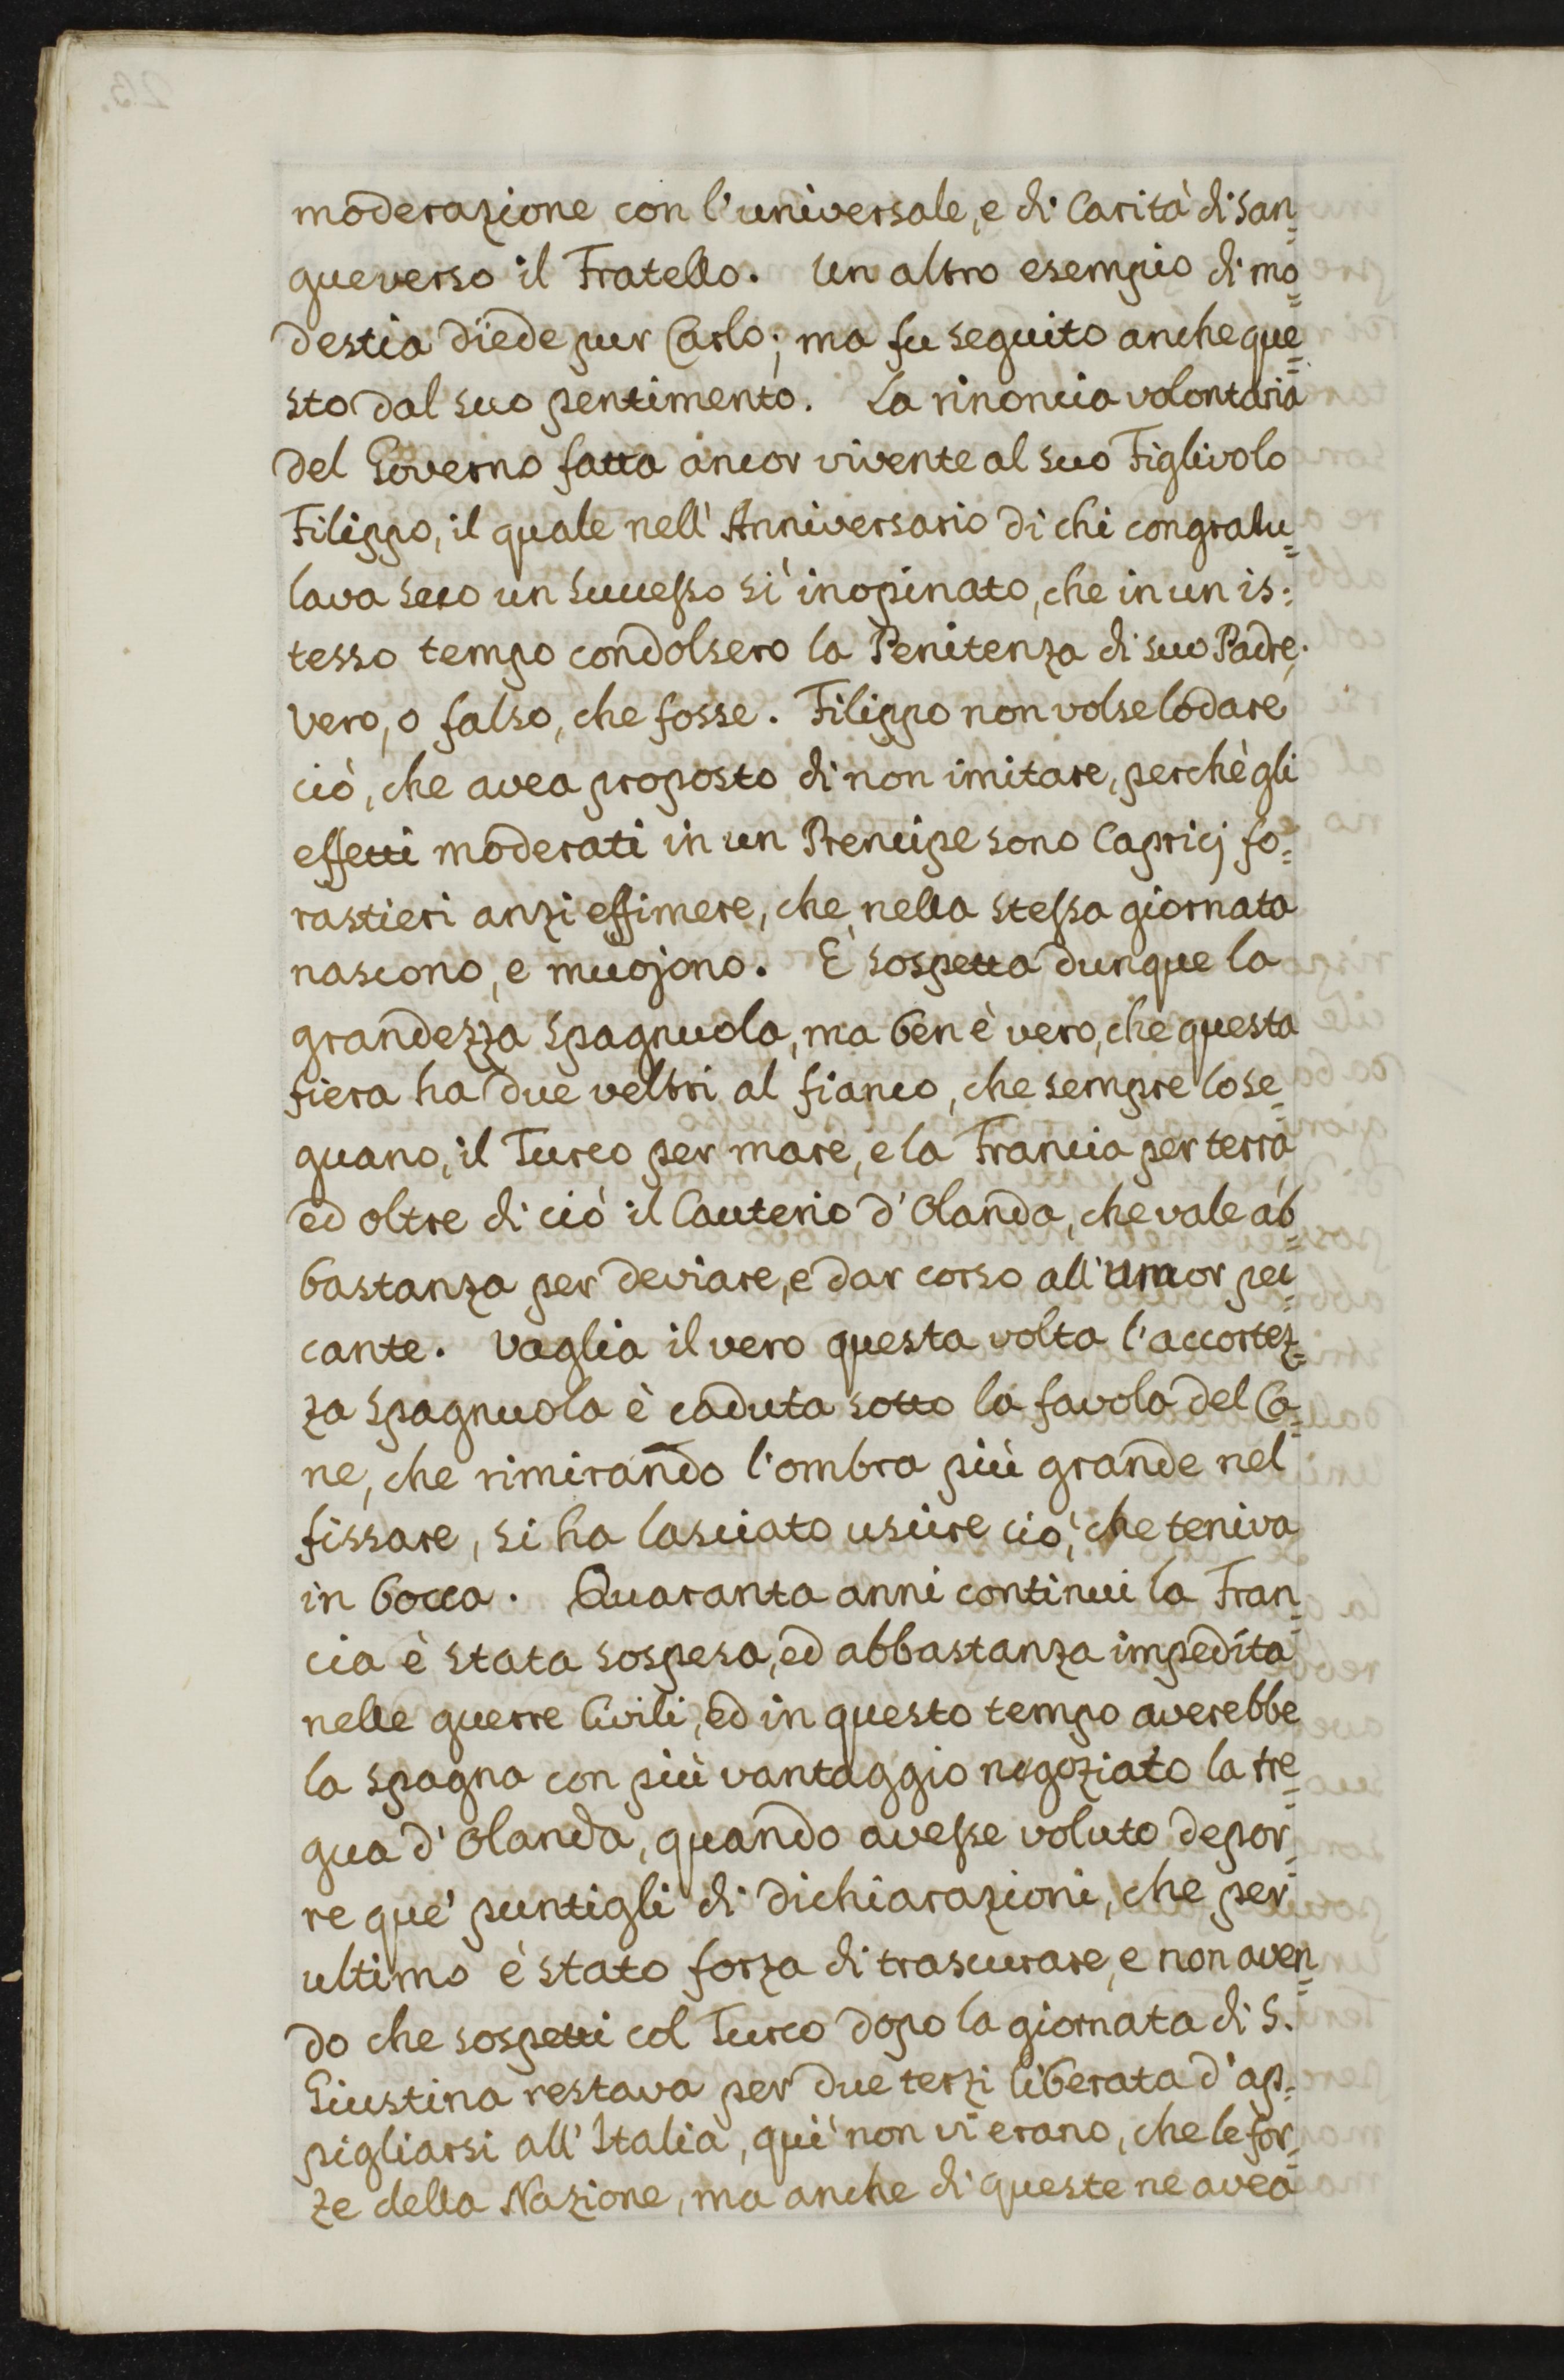 moderazione con l'universale, e di Carità di San=
gue verso il Fratello. Un altro esempio di mo=
destia diede pur Carlo; ma fu seguito anche que=
sto dal suo pentimento. La rinoncia volontaria
del Governo fatta ancor vivente al suo Figlivolo
Filippo, il quale nell'Anniversario di chi congratu=
lava seco un Successo sì inopinato, che in un is=
tesso tempo condolsero la Penitenza di suo Padre,
vero, o falso, che fosse. Filippo non volse lodare
ciò, che avea proposto di non imitare, perchè gli
effetti moderati in un Prencipe sono Capricj fo=
rastieri anzi effimere, che nella stessa giornata
nascono, e muojono. È sospetta dunque la
grandezza Spagnuola, ma ben è vero, che questa
fiera ha due veltri al fianco, che sempre lo se=
guano, il Turco per mare, e la Francia per terra,
ed oltre di ciò il Cauterio d'Olanda, che vale ab=
bastanza per deviare, e dar corso all'umor pec=
cante. Vaglia il vero questa volta l'accortez=
za Spagnuola è caduta sotto la favola del Ca=
ne, che rimirando l'ombra più grande nel
fissare, si ha lasciato uscire ciò, che teniva
in bocca. Quaranta anni continui la Fran=
cia è stata sospesa, ed abbastanza impedita
nelle guerre Civili, ed in questo tempo averebbe
la Spagna con più vantaggio negoziato la tre=
gua d'Olanda, quando avesse voluto depor=
re que' puntigli di dichiarazioni, che per
ultimo è stato forza di trascurare, e non aven=
do che sospetti col Turco dopo la giornata di S.
Giustina restava per due terzi liberata d'ap=
pigliarsi all'Italia, quì non vi erano, che le for=
ze della Nazione, ma anche di queste ne avea